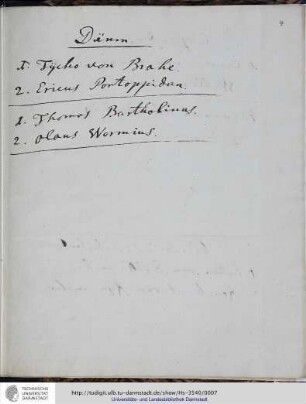 Dänen
1. Tycho von Brahe.
2. Ericus Pontoppidan.
1. Thomas Bartholinus.
2. Olaus Wormius.
TECHNISCHE
UNIVERSITÄT
DARMSTADT
http://tudigit.ulb.tu-darmstadt.de/show/Hs-3540/0007
Universitäts- und Landesbibliothek Darmstadt